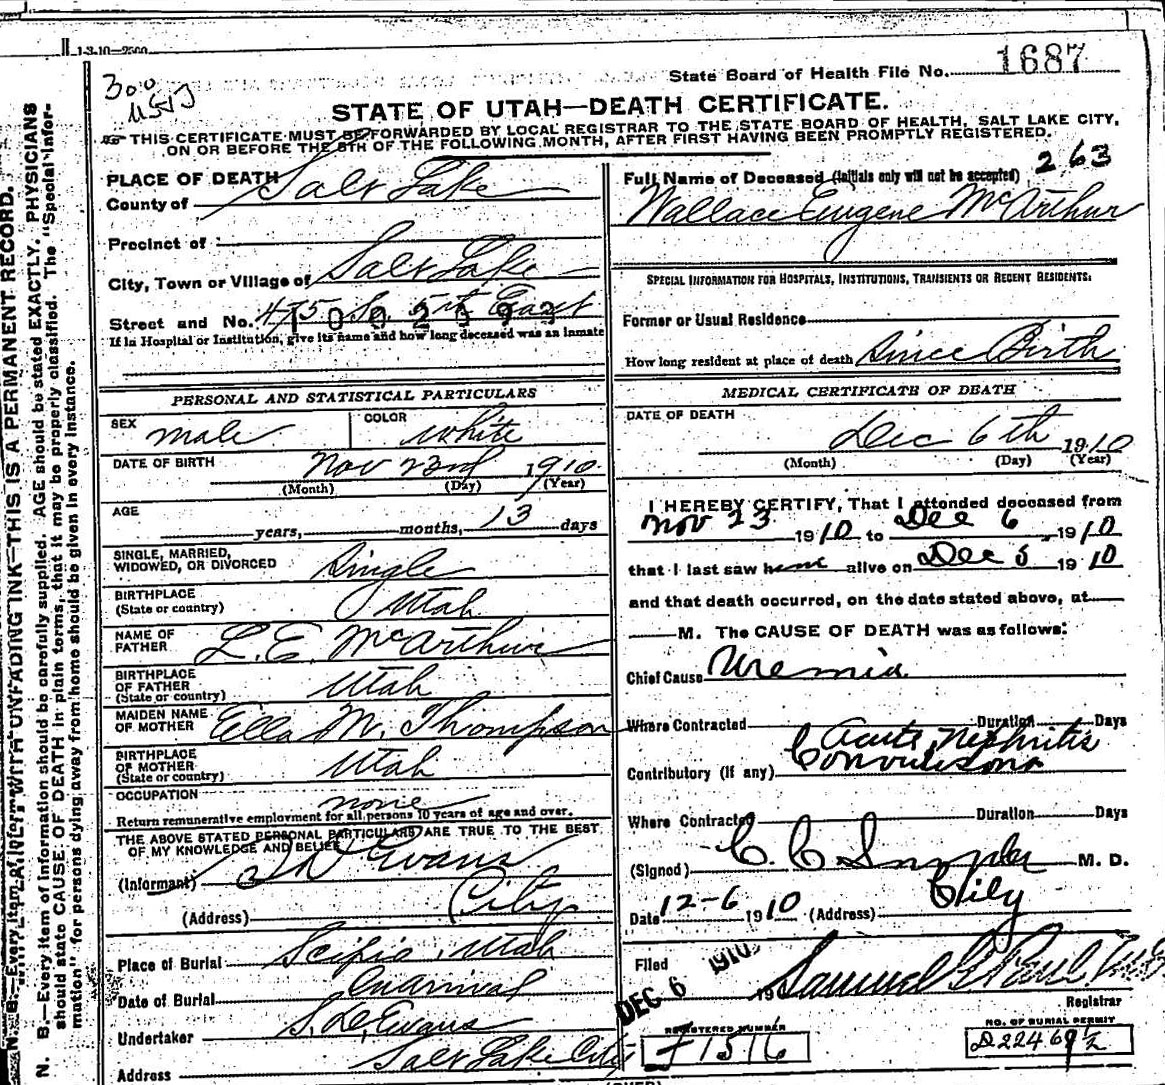 1-3-10—2500
State Board of Health File No. 1687
300
STATE OF UTAH—DEATH CERTIFICATE.
THIS CERTIFICATE MUST BE FORWARDED BY LOCAL REGISTRAR TO THE STATE BOARD OF HEALTH, SALT LAKE CITY,
ON OR BEFORE THE 5TH OF THE FOLLOWING MONTH, AFTER FIRST HAVING BEEN PROMPTLY REGISTERED.
N. B.—Every item of information should be carefully supplied. AGE should be stated EXACTLY. PHYSICIANS
should state CAUSE OF DEATH in plain terms, that it may be properly classified. The "Special Infor-
mation" for persons dying away from home should be given in every instance.
WITH UNFADING INK—THIS IS A PERMANENT RECORD.
PLACE OF DEATH
County of Salt Lake
Precinct of
City, Town or Village of Salt Lake
Street and No. 475 So. 5th East
If in Hospital or Institution, give its name and how long deceased was an inmate
PERSONAL AND STATISTICAL PARTICULARS
SEX male COLOR white
DATE OF BIRTH Nov 23rd 1910
(Month) (Day) (Year)
AGE
years, months, 13 days
SINGLE, MARRIED,
WIDOWED, OR DIVORCED Single
BIRTHPLACE
(State or country) Utah
NAME OF
FATHER L. E. McArthur
BIRTHPLACE
OF FATHER
(State or country) Utah
MAIDEN NAME
OF MOTHER Ella M. Thompson
BIRTHPLACE
OF MOTHER
(State or country) Utah
OCCUPATION none
Return remunerative employment for all persons 10 years of age and over.
THE ABOVE STATED PERSONAL PARTICULARS ARE TRUE TO THE BEST
OF MY KNOWLEDGE AND BELIEF
(Informant) Evans
(Address) City
Place of Burial Scipio, Utah
Date of Burial On arrival
Undertaker S. D. Evans
Address Salt Lake City
263
Full Name of Deceased (initials only will not be accepted)
Wallace Eugene McArthur
SPECIAL INFORMATION FOR HOSPITALS, INSTITUTIONS, TRANSIENTS OR RECENT RESIDENTS:
Former or Usual Residence
How long resident at place of death Since Birth
MEDICAL CERTIFICATE OF DEATH
DATE OF DEATH
Dec 6th 1910
(Month) (Day) (Year)
I HEREBY CERTIFY, That I attended deceased from
Nov 23 1910 to Dec 6 1910
that I last saw him alive on Dec 5 1910
and that death occurred, on the date stated above, at
M. The CAUSE OF DEATH was as follows:
Chief Cause Uremia
Where Contracted Duration Days
Acute Nephritis
Contributory (if any) Convulsions
Where Contracted Duration Days
(Signed) C. C. Snyder M. D.
Date 12-6 1910 (Address) City
Filed DEC 6 1910 190 Samuel G Paul M.D.
Registrar
REGISTERED NUMBER
F1516
NO. OF BURIAL PERMIT
D22469½
(OVER)